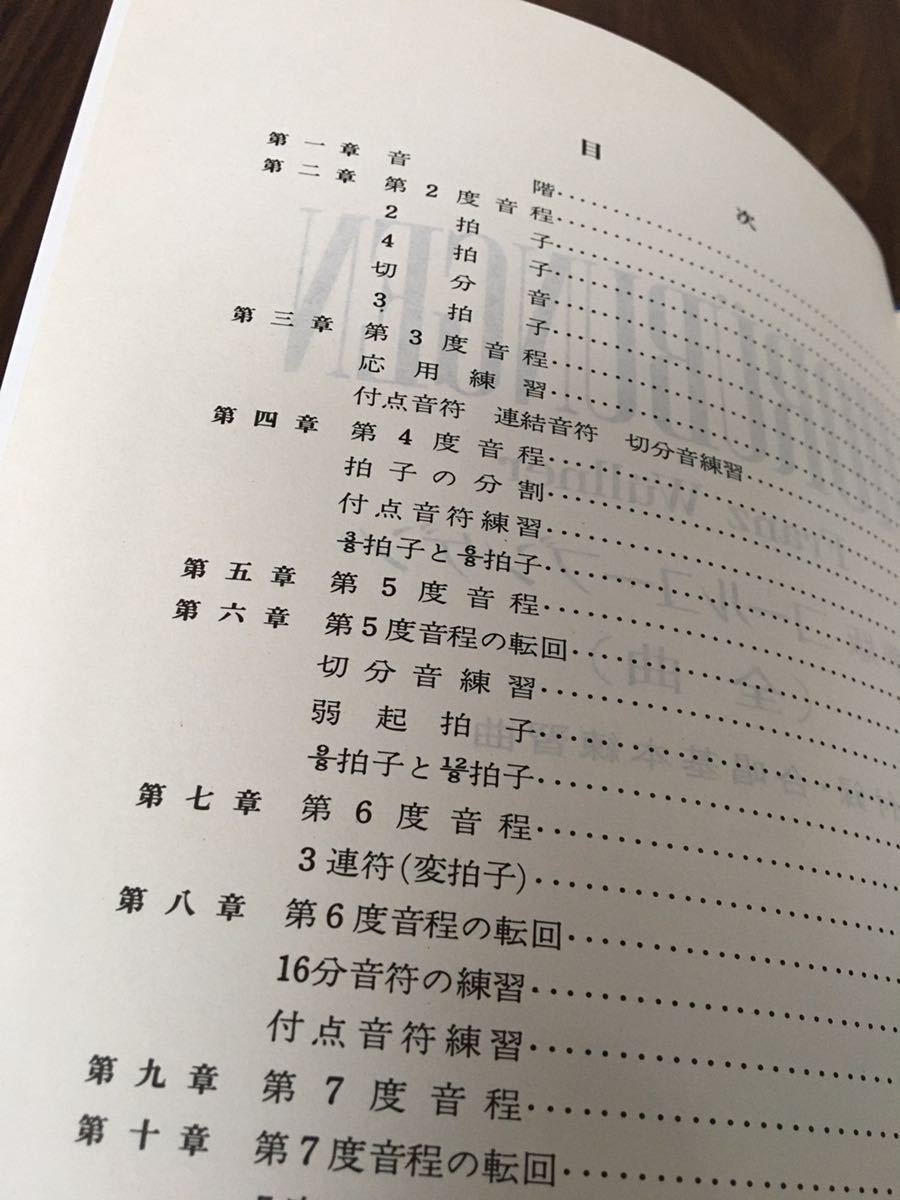 目次
第一章 音階
第二章 第2度音程
2拍子
4拍子
切分音
3拍子
第三章 第3度音程
応用練習
付点音符 連結音符 切分音練習
第四章 第4度音程
拍子の分割
付点音符練習
3/8拍子と6/8拍子
第五章 第5度音程
第六章 第5度音程の転回
切分音練習
弱起拍子
9/8拍子と12/8拍子
第七章 第6度音程
3連符(変拍子)
第八章 第6度音程の転回
16分音符の練習
付点音符練習
第九章 第7度音程
第十章 第7度音程の転回